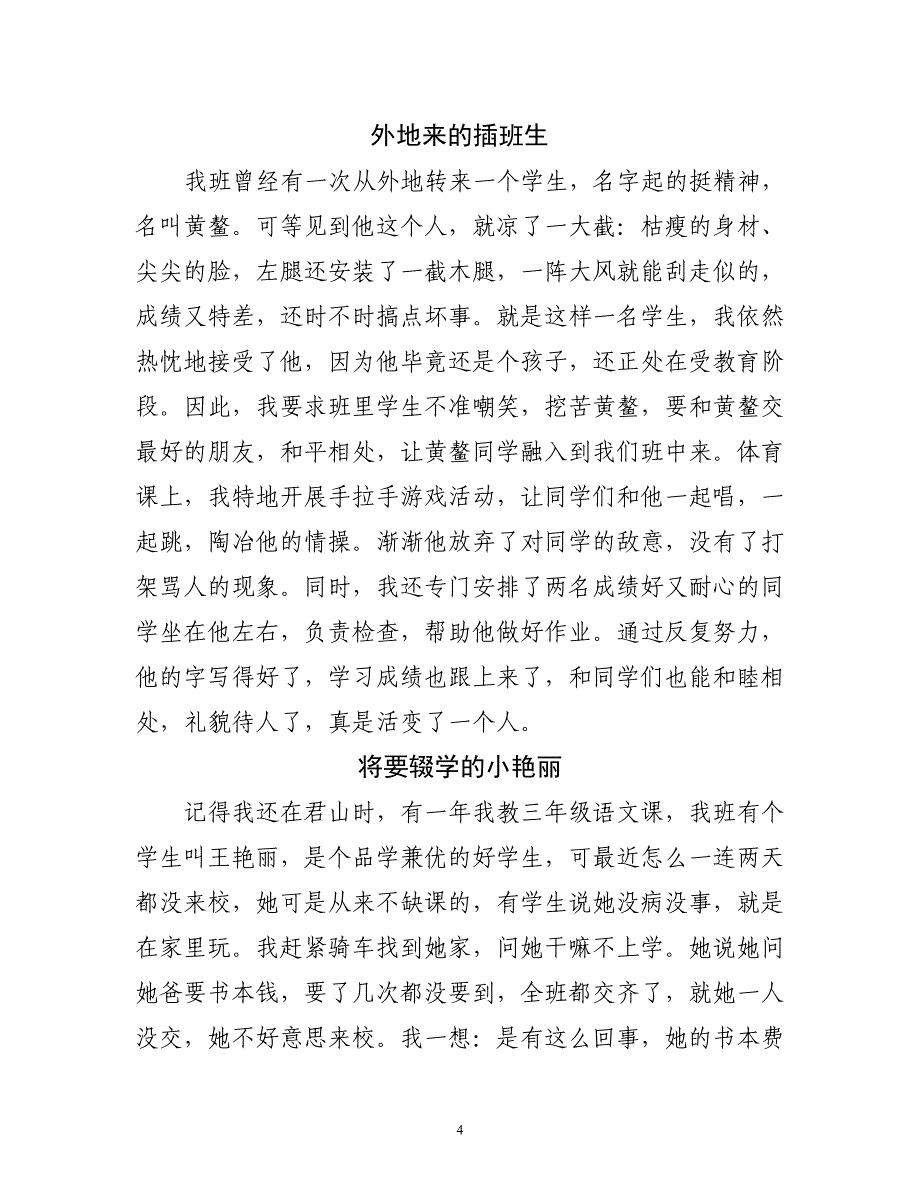 外地来的插班生
我班曾经有一次从外地转来一个学生，名字起的挺精神，
名叫黄鳌。可等见到他这个人，就凉了一大截：枯瘦的身材、
尖尖的脸，左腿还安装了一截木腿，一阵大风就能刮走似的，
成绩又特差，还时不时搞点坏事。就是这样一名学生，我依然
热忱地接受了他，因为他毕竟还是个孩子，还正处在受教育阶
段。因此，我要求班里学生不准嘲笑，挖苦黄鳌，要和黄鳌交
最好的朋友，和平相处，让黄鳌同学融入到我们班中来。体育
课上，我特地开展手拉手游戏活动，让同学们和他一起唱，一
起跳，陶冶他的情操。渐渐他放弃了对同学的敌意，没有了打
架骂人的现象。同时，我还专门安排了两名成绩好又耐心的同
学坐在他左右，负责检查，帮助他做好作业。通过反复努力，
他的字写得好了，学习成绩也跟上来了，和同学们也能和睦相
处，礼貌待人了，真是活变了一个人。
将要辍学的小艳丽
记得我还在君山时，有一年我教三年级语文课，我班有个
学生叫王艳丽，是个品学兼优的好学生，可最近怎么一连两天
都没来校，她可是从来不缺课的，有学生说她没病没事，就是
在家里玩。我赶紧骑车找到她家，问她干嘛不上学。她说她问
她爸要书本钱，要了几次都没要到，全班都交齐了，就她一人
没交，她不好意思来校。我一想：是有这么回事，她的书本费
4